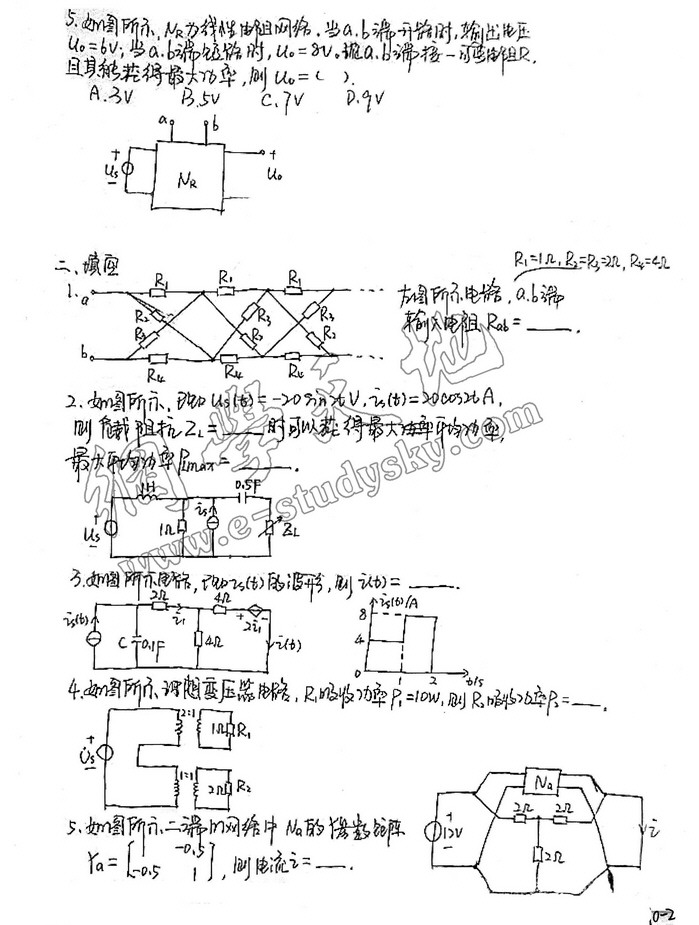 5. 如图所示, NR为线性电阻网络. 当a.b端开路时,输出电压
Uo=6V; 当a.b端短路时, Uo=8V. 现a.b端接一可变电阻R,
且其能获得最大功率, 则Uo=( ).
A.3V B.5V C.7V D.9V
a b
+ Us −
NR
+ Uo
二、填空
R1=1Ω, R2=R3=2Ω, R4=4Ω
1. a R1 R1 R1 ...
R2 R3 R3 R3 R2
b R4 R4 R4 ...
左图所示电路, a.b端
输入电阻Rab= ____.
2. 如图所示, 已知Us(t)=-20sin2tV, is(t)=20cos2tA,
则负载阻抗ZL=____时可以获得最大功率平均功率,
最大平均功率PLmax=____.
1H 0.5F
Us 1Ω is ZL
3. 如图所示电路, 已知is(t)的波形, 则i(t)= ____.
is(t) 2Ω i1 4Ω + 2i1 −
C 0.1F 4Ω i(t)
is(t)/A
8
4
0 1 2 t/s
4. 如图所示理想变压器电路, R1吸收功率P1=10W, 则R2吸收功率P2=____.
+ Us −
2:1 1Ω R1
1:1 2Ω R2
5. 如图所示二端口网络中Na的 参数矩阵
Ya=[ -0.5
-0.5 1 ], 则电流i=____.
Na
2Ω 2Ω
+ 12V − 2Ω i
0-2
網學天地
www.e-studysky.com